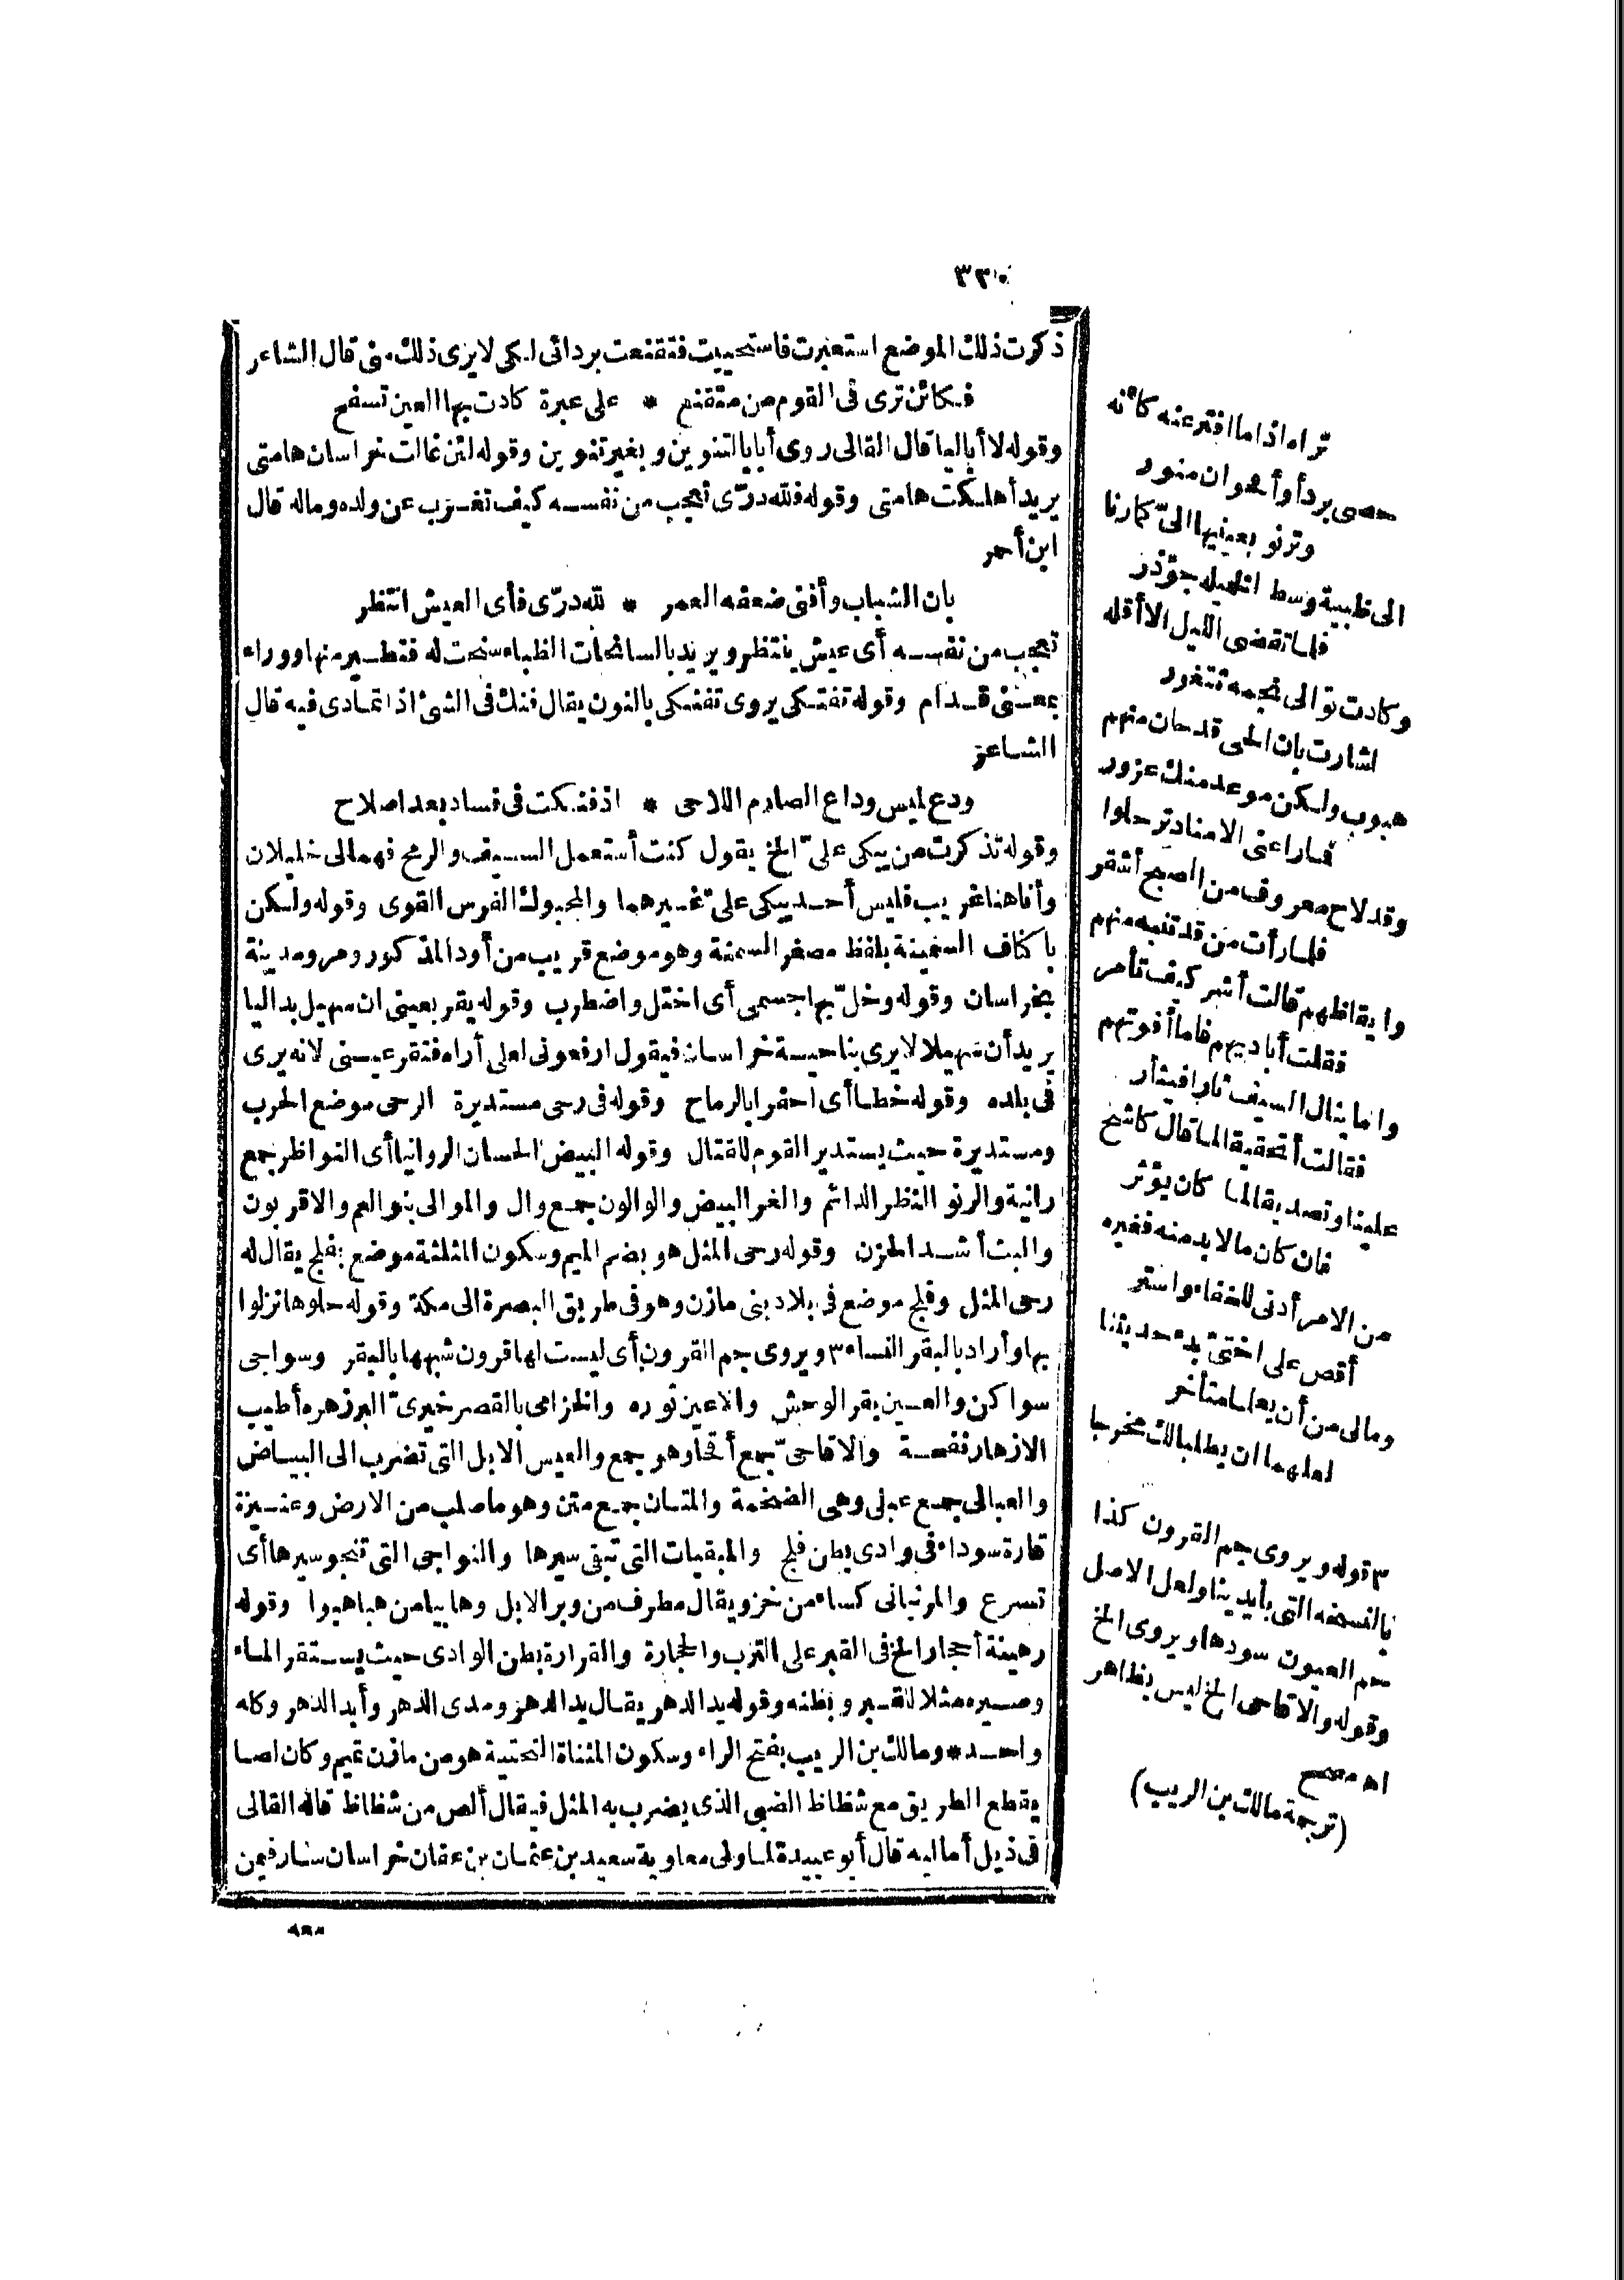 ٣٢٠
ذكرت ذلك الموضع استعبرت فاستحييت فتقنعت بردائى لكى لا يرى ذلك منى قال الشاعر
فكائن ترى فى القوم من متقنع * على عبرة كادت بها العين تسفح
وقوله لا أباليا قال القالى روى أبا بالتنوين وبغير تنوين وقوله لئن غالت خراسان هامتى
يريد أهلكت هامتى وقوله فلله درّى تعجب من نفسه كيف تغرّب عن ولده وماله قال
ابن أحمر
بان الشباب وأفنى ضعفه العمر * لله درّى فأى العيش انتظر
تعجب من نفسه أى عيش ينتظر ويريد بالسانحات الظباء سنحت له فتطير منها ووراء
بمعنى قدام وقوله تفتكى يروى تفنكى بالنون يقال فنك فى الشئ اذا تمادى فيه قال
الشاعر
ودع لميس وداع الصارم اللاحى * اذ فنكت فى فساد بعد اصلاح
وقوله تذكرت من يبكى علىّ الخ يقول كنت أستعمل السيف والرمح فهما لى خليلان
وأنا هنا غريب فليس أحد يبكى علىّ غيرهما والمحبوك الفرس القوى وقوله ولكن
باكناف السمينة بلفظ مصغر السمنة وهو موضع قريب من أود المذكور ومرو مدينة
بخراسان وقوله وخلّ بها جسمى أى اختل واضطرب وقوله يقر بعينى ان سهيل بداليا
يريد أن سهيلا لا يرى بناحية خراسان فيقول ارفعونى لعلى أراه فتقر عينى لانه يرى
فى بلده وقوله خطا أى احفرا بالرماح وقوله فى رحى مستديرة الرحى موضع الحرب
ومستديرة حيث يستدير القوم للقتال وقوله البيض الحسان الروانيا أى النواظر جمع
رانية والرنو النظر الدائم والغر البيض والوالون جمع وال والموالى بنو العم والاقربون
والبث أشد الحزن وقوله رحى المثل هو بضم الميم وسكون المثلثة موضع بفلج يقال له
رحى المثل وفلج موضع فى بلاد بنى مازن وهو فى طريق البصرة الى مكة وقوله حلوها نزلوا
بها وأراد بالبقر النساء ٣ ويروى جم القرون أى ليست لها قرون شبهها بالبقر وسواجى
سواكن والعين بقر الوحش والاعين ثوره والخزامى بالقصر خيرىّ البر زهره أطيب
الازهار نفحة والاقاحىّ جمع أقحاو هو جمع والعيس الابل التى تضرب الى البياض
والعبالى جمع عبلى وهى الضخمة والمتان جمع متن وهو ما صلب من الارض وعنيزة
قارة سوداء فى وادى بطن فلج والمبقيات التى تبقى سيرها والنواجى التى تنجو سيرها أى
تسرع والمرنبانى كساء من خز ويقال مطرف من وبر الابل وهابيا من هبا هبوا وقوله
رهينة أحجار الخ فى القبر على الترب والحجارة والقرارة بطن الوادى حيث يستقر الماء
وصيره مثلا للقبر وبطنه وقوله يد الدهر يقال يد الدهر ومدى الدهر وأبد الدهر وكله
واحد * ومالك بن الريب بفتح الراء وسكون المثناة التحتية هو من مازن تميم وكان لصا
يقطع الطريق مع شظاظ الضبى الذى يضرب به المثل فيقال ألص من شظاظ قاله القالى
فى ذيل أماليه قال أبو عبيدة لما ولى معاوية سعيد بن عثمان بن عفان خراسان سار فيمن
معه
تراه اذا ما افتر عنه كأنه
حصى برد أو أقحوان منور
وترنو بعينيها الىّ كما رنا
الى ظبية وسط الخميلة جؤذر
فلما تقضى الليل الا أقله
وكادت توالى نجمه تتغور
اشارت بان الحى قد حان منهم
هبوب ولكن موعد منك عزور
فما راعنى الا مناد ترحلوا
وقد لاح معروف من الصبح أشقر
فلما رأت من قد تنبه منهم
وايقاظهم قالت أشر كيف تأمر
فقلت أباديهم فاما أفوتهم
واما ينال السيف ثارا فيثأر
فقالت أتحقيقا لما قال كاشح
علينا وتصديقا لما كان يؤثر
فان كان ما لا بد منه فغيره
من الامر أدنى للخفاء واستر
أقص على اختى بدء حديثنا
ومالى من أن يعلما متأخر
لعلهما ان يطلبا لك مخرجا
٣ قوله ويروى جم القرون كذا
بالنسخه التى بأيدينا ولعل الاصل
حم العيون سودها ويروى الخ
وقوله والاقاحى الخ ليس بظاهر
اه مصحح
(ترجمة مالك بن الريب)